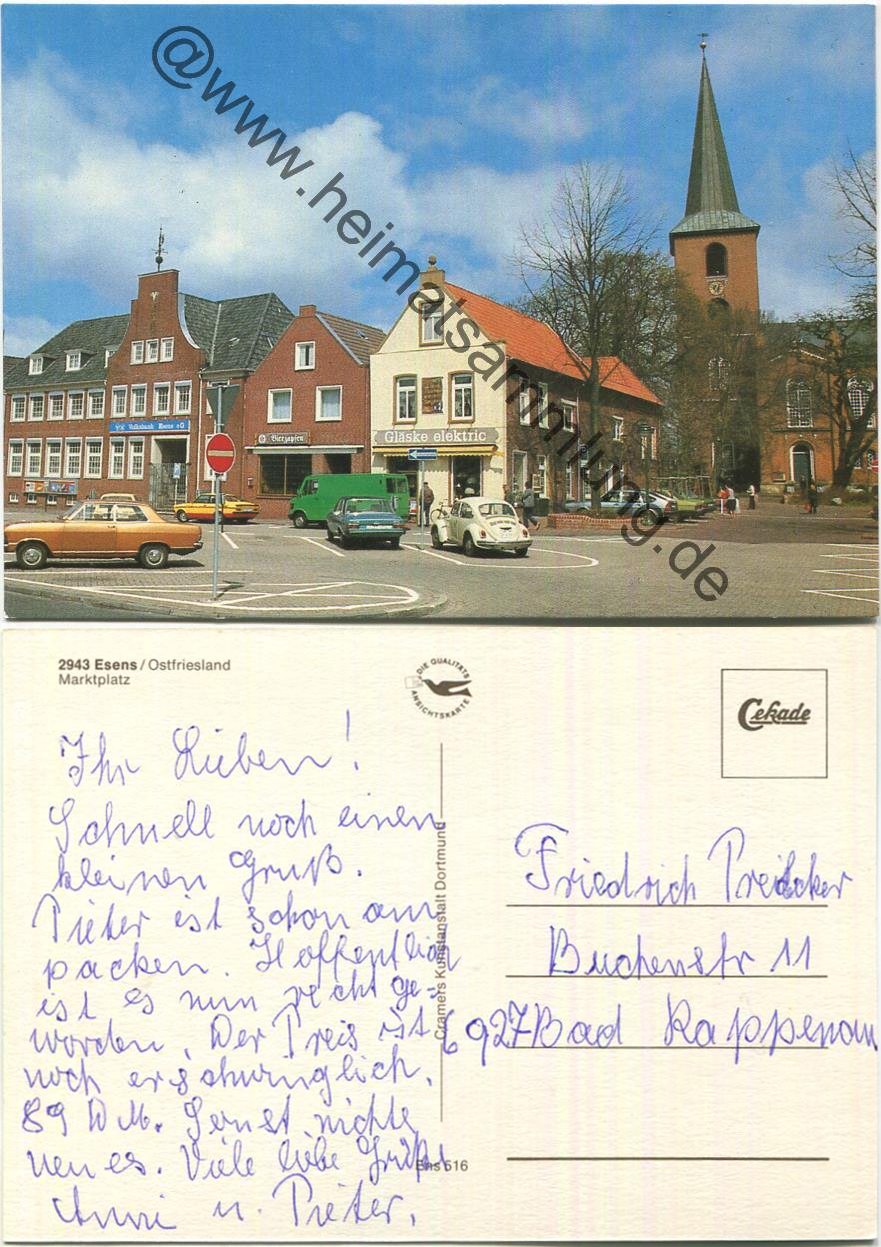 @www.heimatsammlung.de
Volksbank Esens eG
Bierzapfen
Gläske elektric
2943 Esens / Ostfriesland
Marktplatz
DIE QUALITÄTS
ANSICHTSKARTE
Cekade
Cramers Kunstanstalt Dortmund
Ens 516
Ihr Lieben!
Schnell noch einen
kleinen Gruß.
Pieter ist schon am
packen. Hoffentlich
ist es nun recht ge-
worden. Der Preis ist
noch erschwinglich.
89 DM. Sonst nichts
neues. Viele liebe Grüße
u. Pieter.
Friedrich
Buchenstr 11
6927 Bad Rappenau